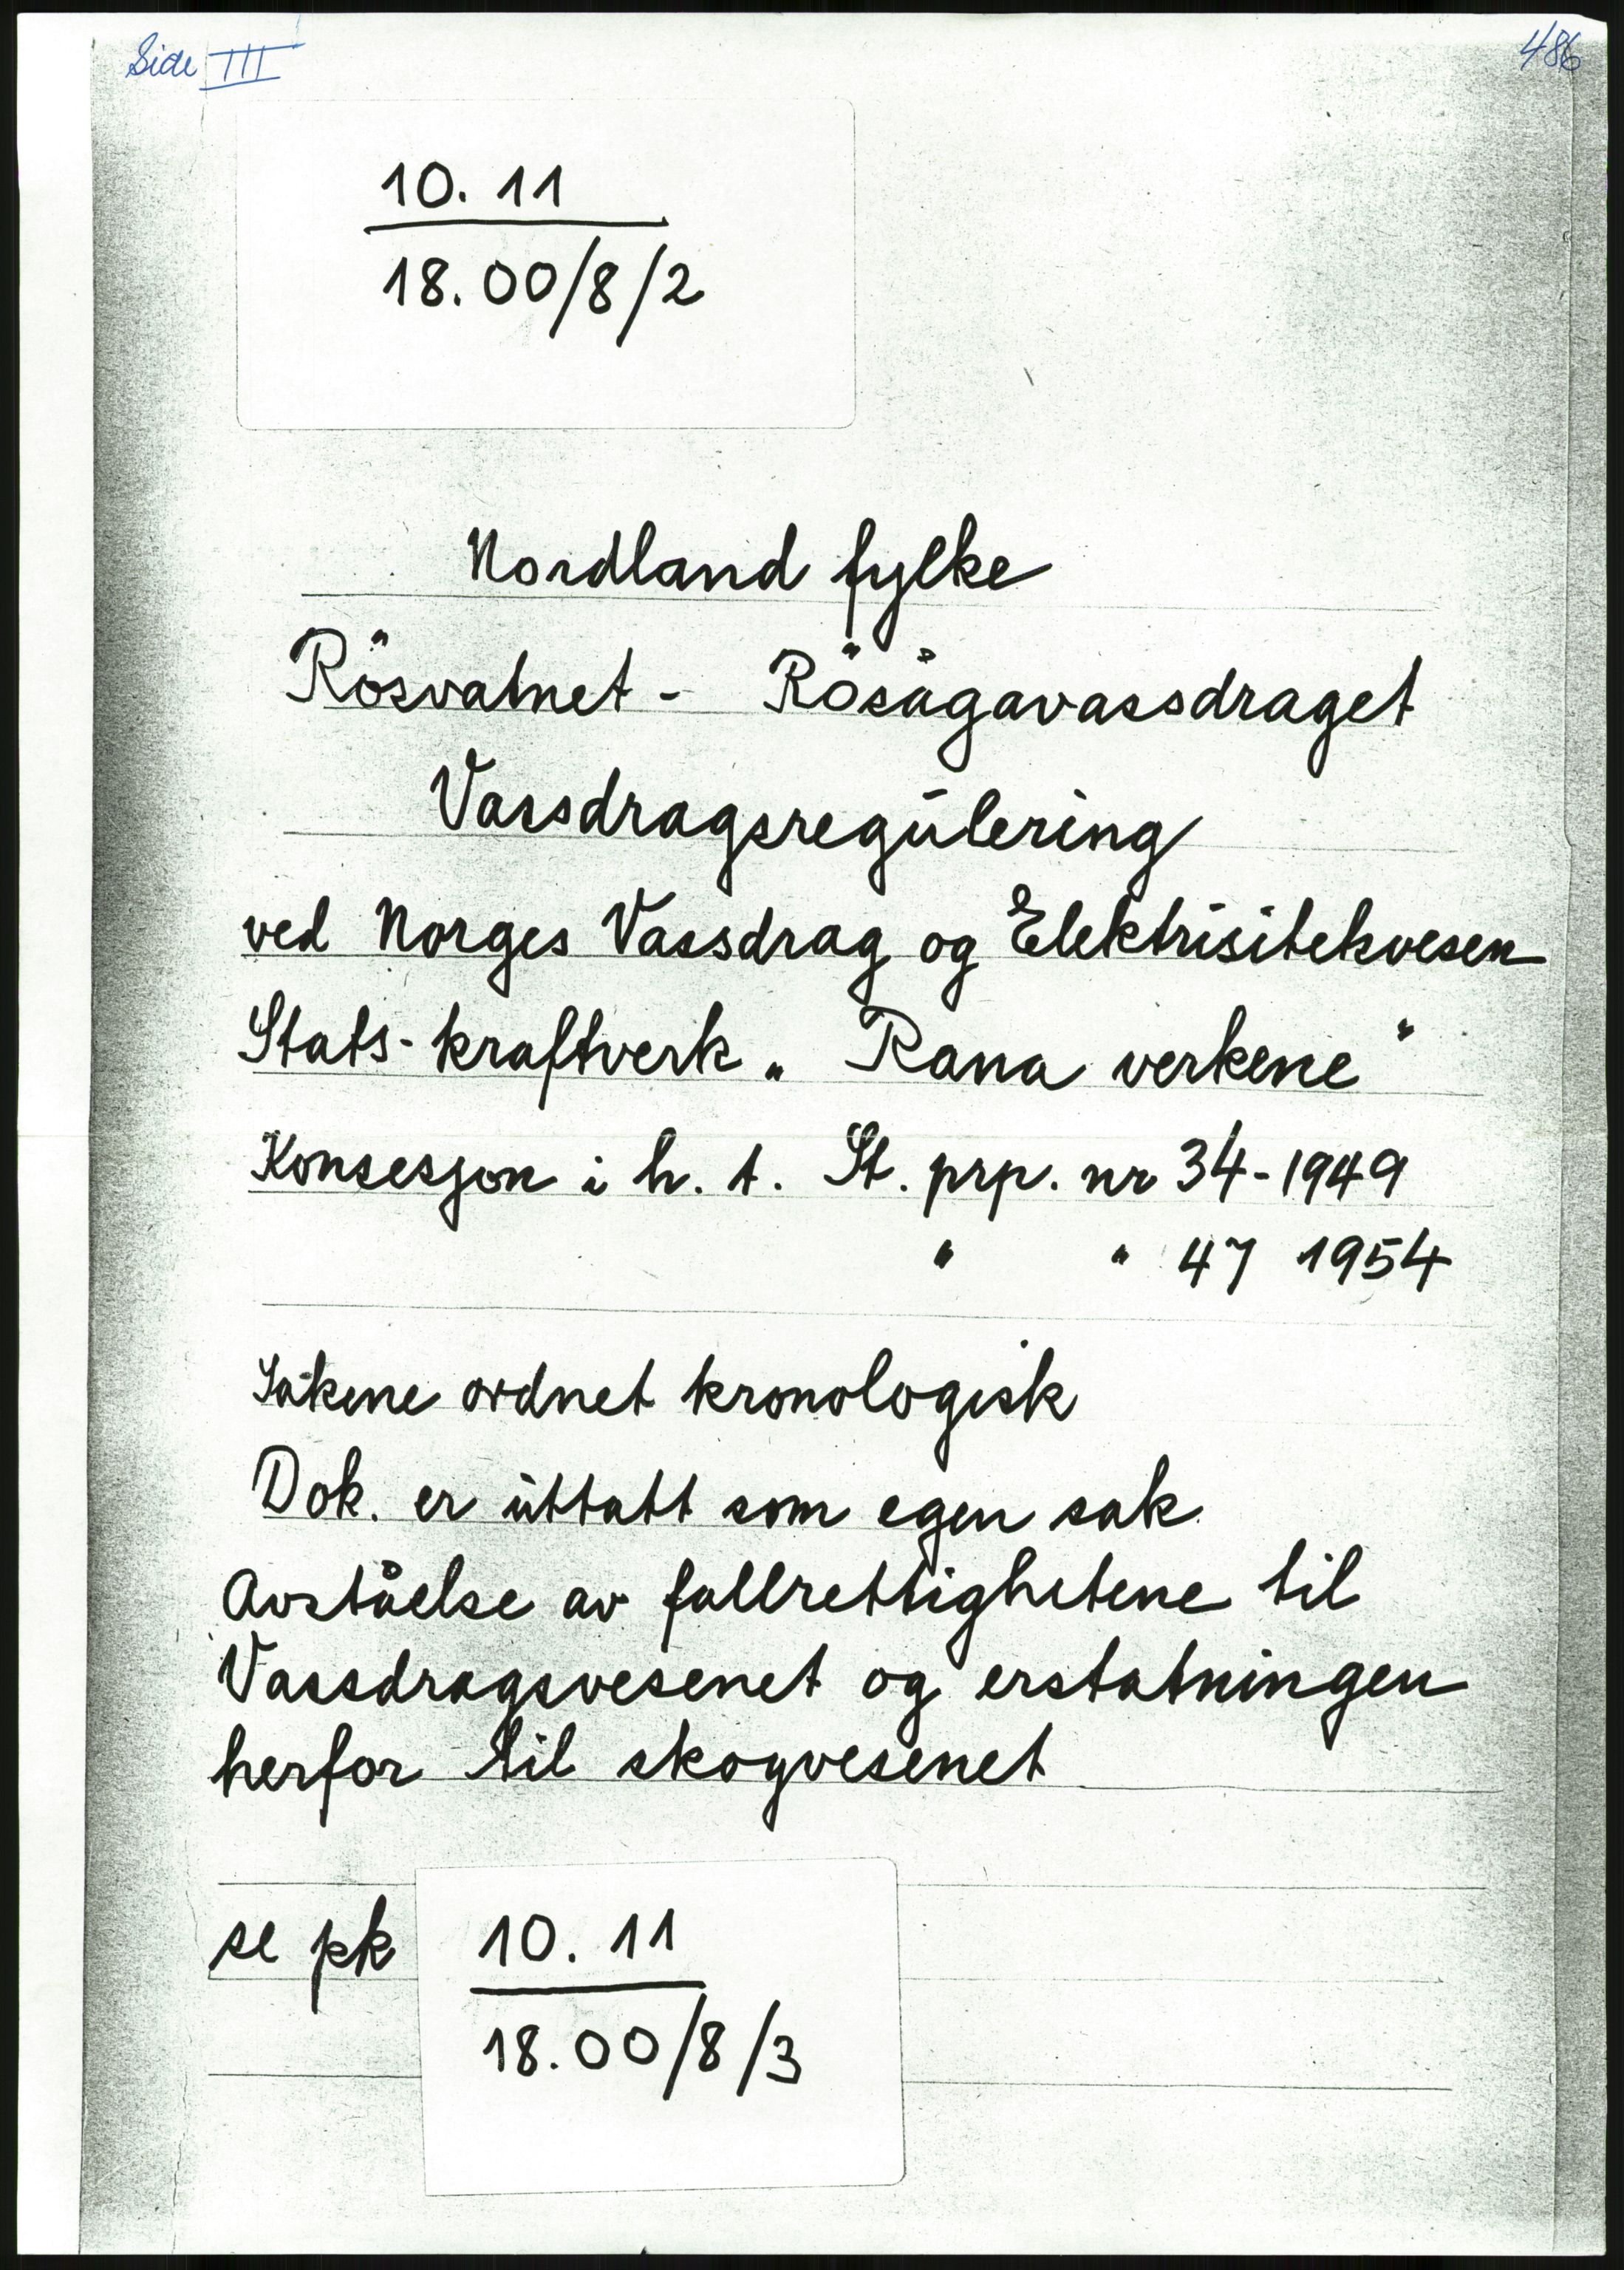 Side III
486
10. 11
18.00/8/2
Nordland fylke
Rösvatnet - Rösågavassdraget
Vassdragsregulering
ved Norges Vassdrag og Elektrisitetsvesen
Stats-kraftverk „ Rana verkene "
Konsesjon i h. t. St. prp. nr 34-1949
" " 47 1954
Sakene ordnet kronologisk
Dok. er uttatt som egen sak
Avståelse av fallrettighetene til
Vassdragsvesenet og erstatningen
herfor til skogvesenet
se pk
10. 11
18.00/8/3